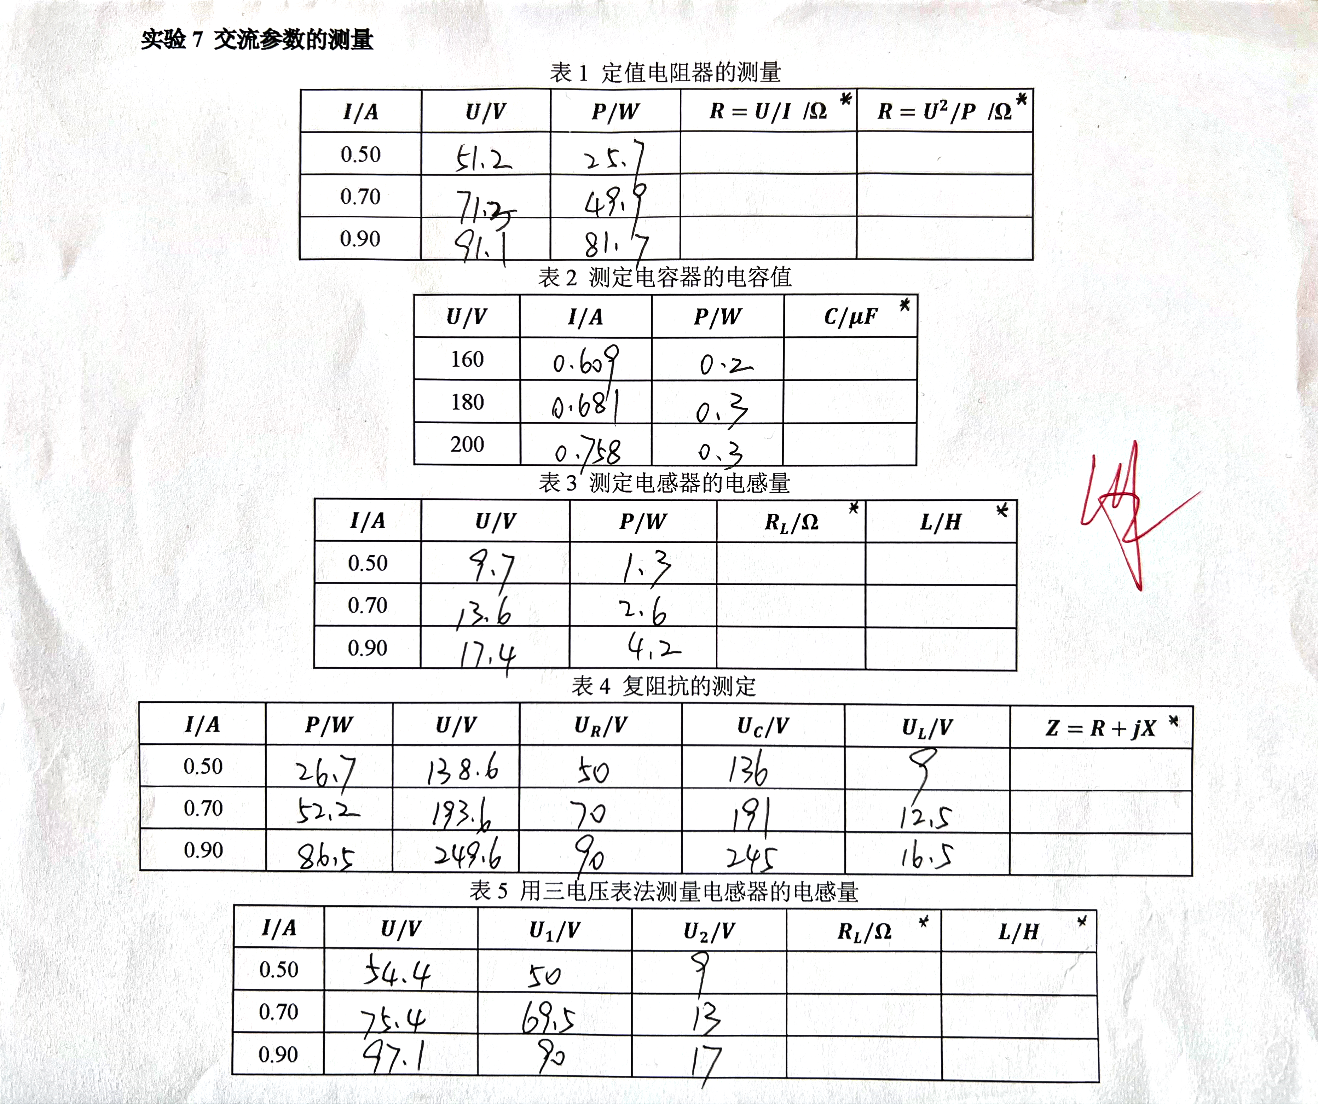 实验 7 交流参数的测量
表 1 定值电阻器的测量
I/A U/V P/W R = U/I /Ω * R = U²/P /Ω *
0.50 51.2 25.7
0.70 71.2 49.9
0.90 91.1 81.7
表 2 测定电容器的电容值
U/V I/A P/W C/μF *
160 0.609 0.2
180 0.681 0.3
200 0.758 0.3
表 3 测定电感器的电感量
I/A U/V P/W R_L/Ω * L/H *
0.50 9.7 1.3
0.70 13.6 2.6
0.90 17.4 4.2
表 4 复阻抗的测定
I/A P/W U/V U_R/V U_C/V U_L/V Z = R + jX *
0.50 26.7 138.6 50 136 9
0.70 52.2 193.6 70 191 12.5
0.90 86.5 249.6 90 245 16.5
表 5 用三电压表法测量电感器的电感量
I/A U/V U₁/V U₂/V R_L/Ω * L/H *
0.50 54.4 50 9
0.70 75.4 69.5 13
0.90 97.1 90 17